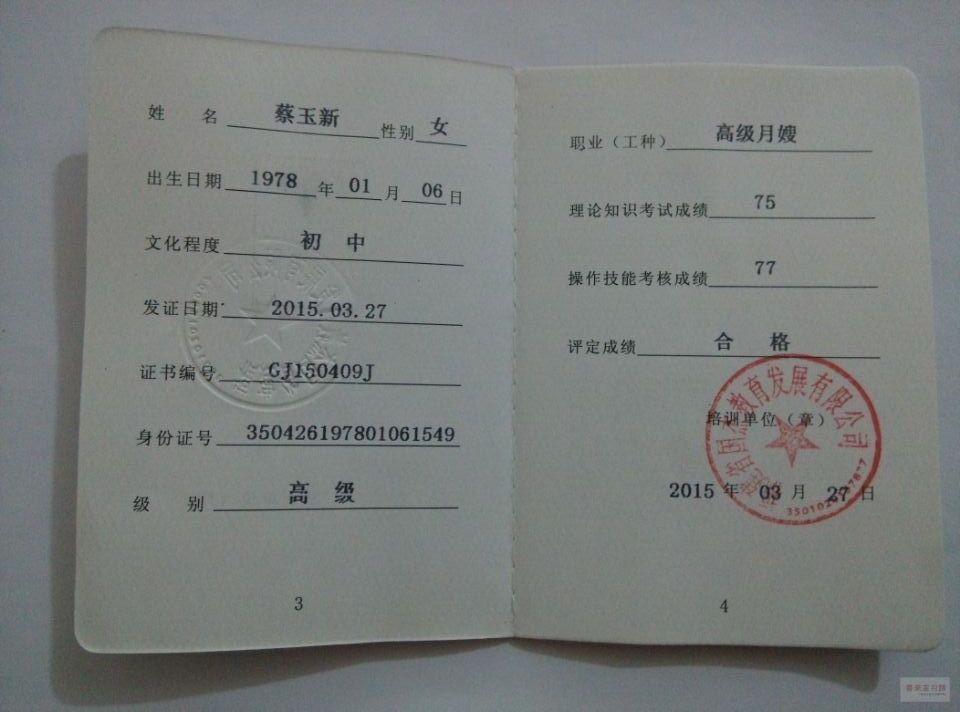 姓 名 蔡玉新 性别 女
出生日期 1978 年 01 月 06 日
文化程度 初 中
发证日期 2015.03.27
证书编号 GJ150409J
身份证号 350426197801061549
级 别 高 级
3
职业（工种） 高级月嫂
理论知识考试成绩 75
操作技能考核成绩 77
评定成绩 合 格
培训单位（章）
2015 年 03 月 27 日
教育发展有限公司
4